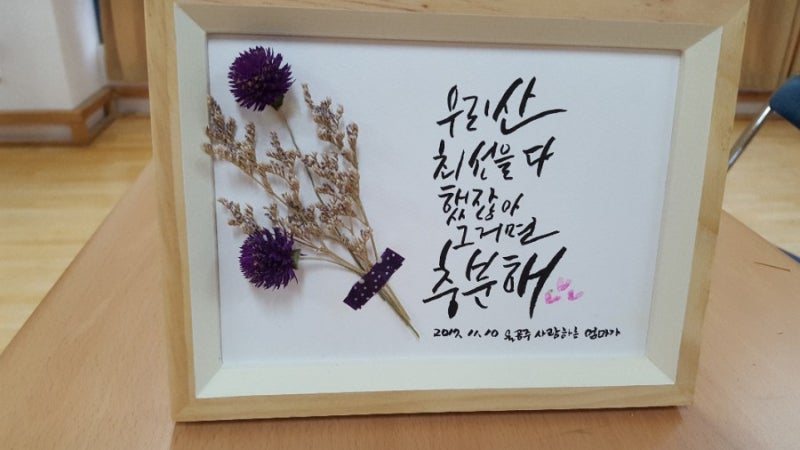 우리산
최선을 다
했잖아
그거면
충분해
2017. 11. 10 공주 사랑하는 엄마가